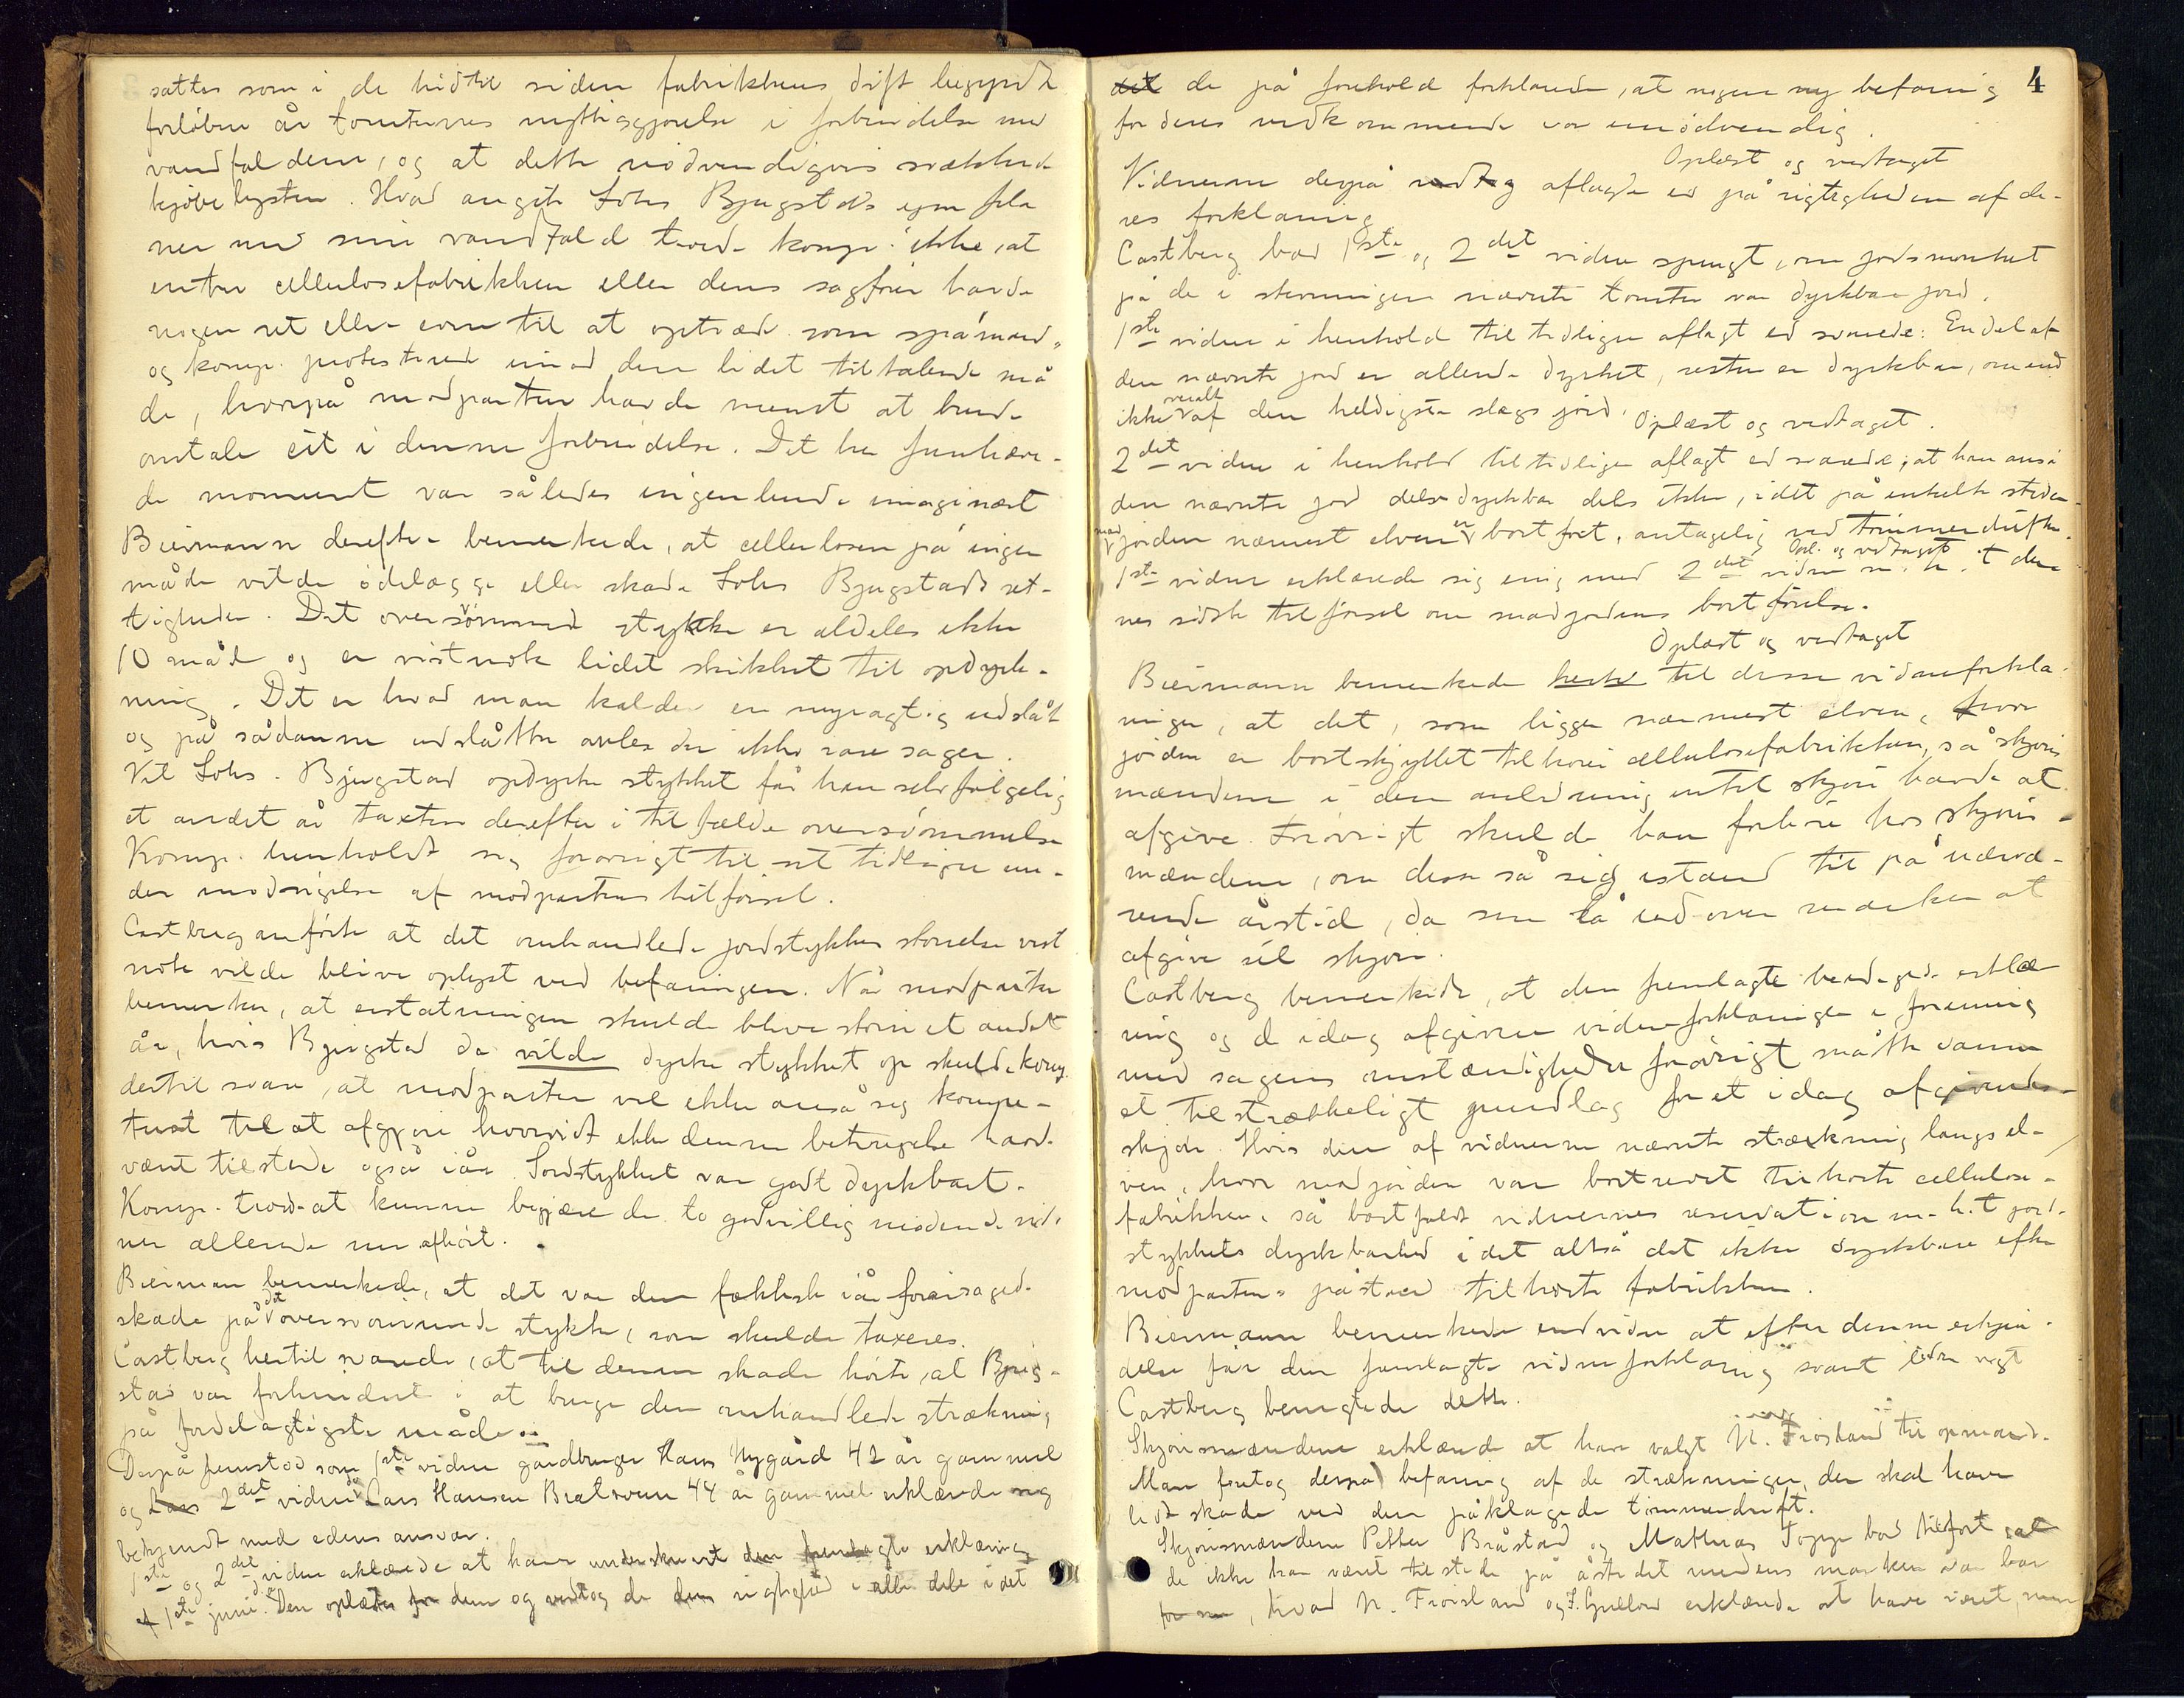 sattes som i de hidtil siden fabrikkens drift begyndte
forløbne år tomternes nyttiggjørelse i forbindelse med
vandfaldene, og at dette nødvendigvis svækkede
kjøbelysten. Hvad angik Johs Bjugstads egne pla
ner med sine vandfald troede komp. ikke, at
enten cellulosefabrikken eller dens sagfører havde
nogen ret eller evne til at optræde som spåmænd,
og komp. protesterede imod den lidet tiltalende må
de, hvorpå modparten havde ment at burde
omtale sit i denne forbindelse. Det her fremhæve-
de moment var således ingenlunde imaginært
Biermann derefter bemerkede, at cellulosen på ingen
måde vilde ødelægge eller skade Johs Bjugstads ret-
tigheder. Det oversvømmede stykke er aldeles ikke
10 mål og er vistnok lidet skikket til opdyrk-
ning. Det er hvad man kalder en myragtig udslåt
og på sådanne udslåtter avles der ikke rare sager.
Vil Johs. Bjugstad opdyrke stykket får han selvfølgelig
et andet år taxten derefter i tilfælde oversvømmelse
Komp. henholdt sig forøvrigt til sit tidligere un-
der modsigelse af modpartens tilførsel.
Castberg anførte at det omhandlede jordstykkes størrelse vist
nok vilde blive oplyst ved befaringen. Når modparten
bemerker, at erstatningen skulde blive større et andet
år, hvis Bjugstad da vilde dyrke stykket op skulde komp.
dertil svare, at modparten vel ikke anså sig kompe-
tent til at afgjøre hvorvidt ikke denne betingelse havde
været tilstede også iår. Jordstykket var godt dyrkbart.
Komp. troede at kunne begjære de to godvillig mødende vid-
ner allerede nu afhørt.
Bierman bemerkede, at det var den faktiske iår forårsagede
skade på det oversvømmede stykke, som skulde taxeres.
Castberg hertil svarede, at til denne skade hørte, at Bjug-
stad var forhindret i at bruge den omhandlede strækning
på fordelagtigste måde.
Derpå fremstod som 1ste vidne gårdbruger Hans Nygård 42 år gammel
og Lars 2det vidne Lars Hansen Bratsveen 44 år gammel erklærede sig
bekjendt med edens ansvar.
1ste og 2det vidne erklærede at have underskrevet den fremlagte erklæring
af 1ste juni. Den oplæstes for dem og vedtog de den i alle dele idet
4
det de på forehold forklarede, at nogen ny befaring
for deres vedkommende var unødvendig.
Oplæst og vedtaget
Vidnerne derpå vedtog aflagde ed på rigtigheden af de-
res forklaring
Castberg bad 1ste og 2det vidne spurgt, om jordsmonnet
på de i stevningen nævnte tomter var dyrkbar jord.
1ste vidne i henhold til tidligere aflagt ed svarede: En del af
den nævnte jord er allerede dyrket, resten er dyrkbar, om end
ikke overalt af den heldigste slags jord. Oplæst og vedtaget.
2det vidne i henhold til tidligere aflagt ed svarede, at han anså
den nævnte jord dels dyrkbar dels ikke, idet på enkelte steder
madjorden nærmest elven er bortført, antagelig ved tømmerdriften
Opl. og vedtaget
1ste vidne erklærede sig enig med 2det vidne m. h. t den-
nes sidste tilførsel om madjordens bortførelse.
Oplæst og vedtaget
Biermann bemerkede til disse vidneforkla
ringer, at det, som ligger nærmest elven, hvor
jorden er bortskyllet tilhører cellulosefabrikken, så skjøns
mændene i den anledning intet skjøn havde at
afgive. Forøvrigt skulde han forhøre hos skjøns-
mændene, om disse så sig istand til på nærvæ-
rende årstid, da sne lå ud over marken at
afgive sit skjøn.
Castberg bemerkede, at den fremlagte beedigede erklæ
ring og de idag afgivne vidneforklaringer i forening
med sagens omstændigheder forøvrigt måtte danne
et tilstrækkeligt grundlag for et idag afgivende
skjøn. Hvis den af vidnerne nævnte strækning langs el-
ven, hvor madjorden var bortrevet tilhørte cellulose-
fabrikken, så bortfaldt vidnernes reservation m. h. t jord-
stykkets dyrkbarhed idet altså det ikke dyrkbare efter
modpartens påstand tilhørte fabrikken.
Biermann bemerkede endvidere at efter denne erkjen-
delse får den fremlagte vidneforklaring svært liden vegt
Castberg benegtede dette.
Skjønsmændene erklærede at have valgt N. Frøisland til opmand.
Man foretog derpå befaring af de strækninger, der skal have
lidt skade ved den påklagede tømmerdrift.
Skjønsmændene Petter Bråstad og Mathias Topp bad tilført, at
de ikke har været tilstede på åstedet medens marken var bar
før nu, hvad N. Frøisland og J. Gullord erklærede at have været, men